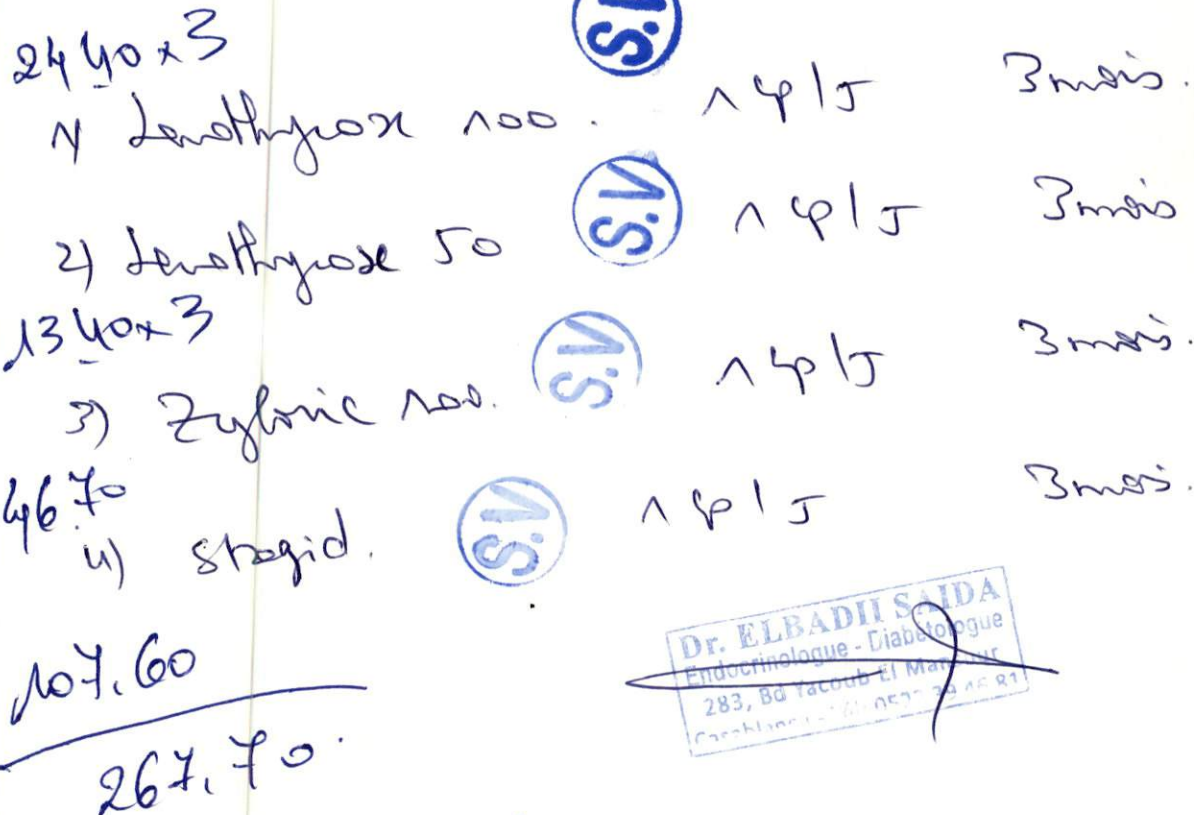 2440x3
S.V
1) Levothyrox 100. 1 cp/J 3 mois.
2) Levothyrox 50 S.V 1 cp/J 3 mois
1340x3
3) Zyloric 100. S.V 1 cp/J 3 mois.
4670
4) Stagid. S.V 1 cp/J 3 mois.
107.60
267.70.
Dr. ELBADII SAIDA
Endocrinologue - Diabetologue
283, Bd Yacoub El Mansour
Casablanca